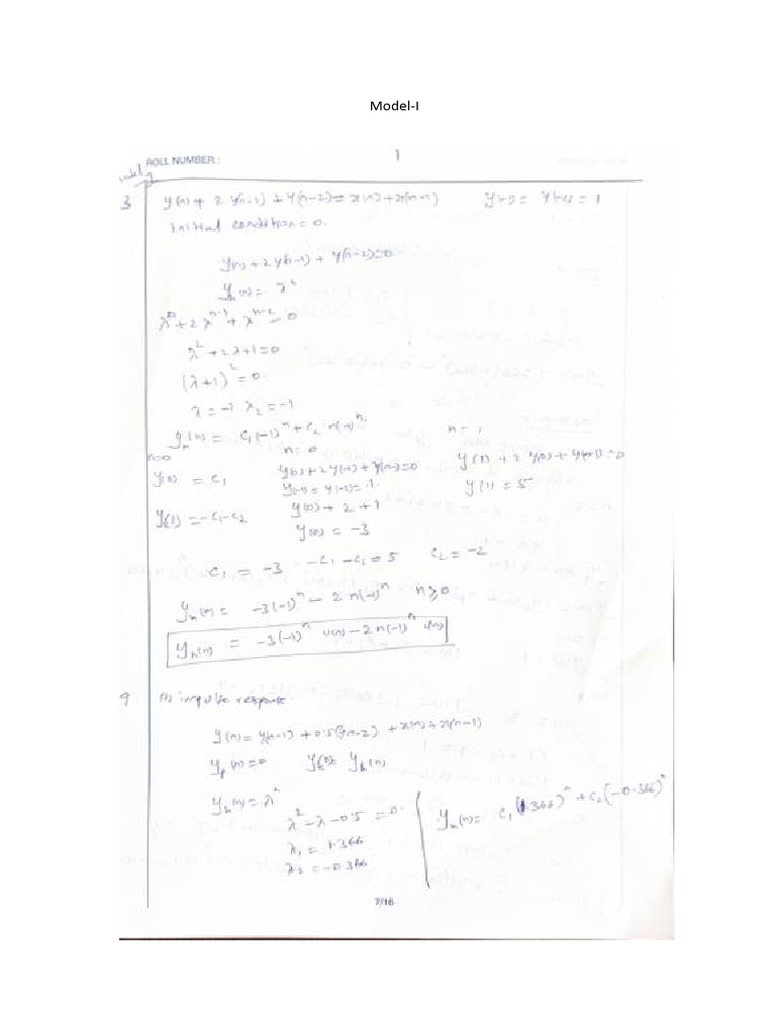 Model-I
ROLL NUMBER : 1
3 y(n)+ 2 y(n-1) + y(n-2) = x(n) + x(n-1) y(-1) = y(-2) = 1
Initial condition = 0.
y(n) + 2 y(n-1) + y(n-2)=0
yh(n) = λ^n
λ^n + 2 λ^n-1 + λ^n-2 = 0
λ^2 + 2λ+1=0
(λ+1)^2 = 0.
λ = -1 λ2 = -1
yh(n) = C1(-1)^n + C2 n(-1)^n. n = 1
n=0 n=0
y(0) = C1 y(0)+2y(-1)+y(-2)=0 y(1) + 2 y(0) + y(-1) = 0
y(-1) = y(-2) = 1. y(1) = 5
y(1) = -C1-C2 y(0) + 2 + 1
y(0) = -3
C1 = -3 -C1 -C2 = 5 C2 = -2
yh(n) = -3(-1)^n - 2n(-1)^n n≥0
yh(n) = -3(-1)^n u(n) - 2n(-1)^n u(n)
9 impulse response.
y(n) = y(n-1) + 0.5y(n-2) + x(n) + x(n-1)
yp(n)=0 yh(n)
yh(n) = λ^n
λ^2 - λ - 0.5 = 0. yh(n) = C1(1.366)^n + C2(-0.366)^n
λ1 = 1.366
λ2 = -0.366
7/16